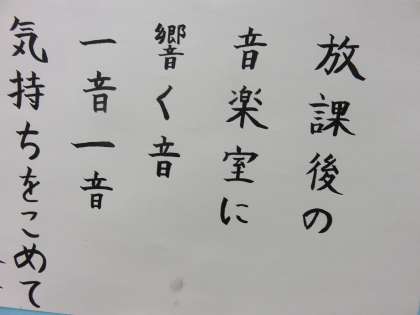 放課後の
音楽室に
響く音
一音一音
気持ちをこめて